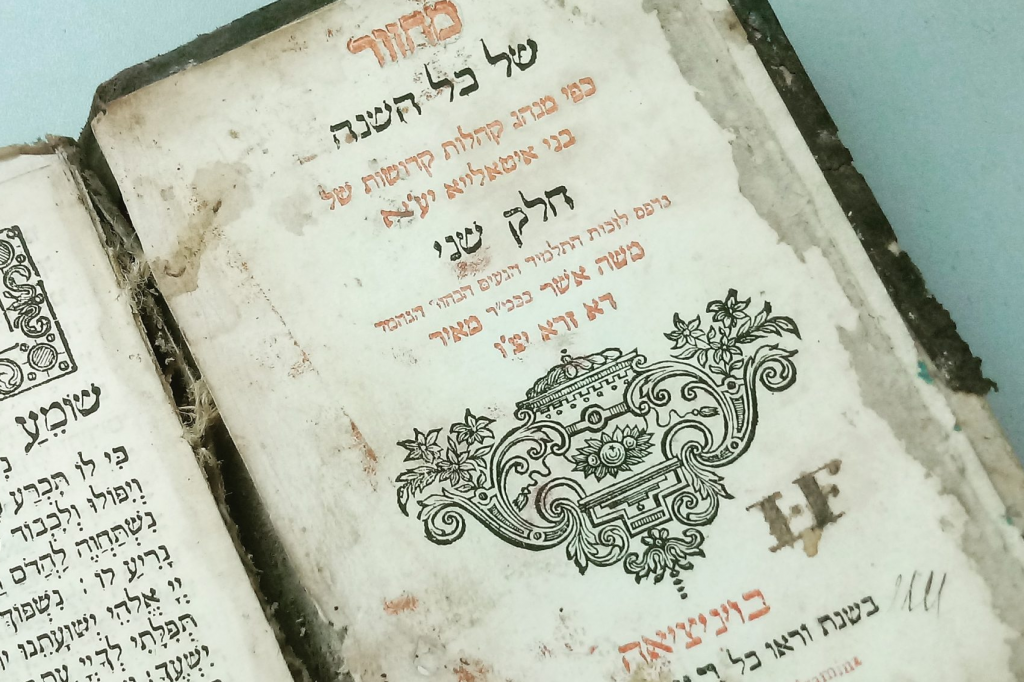 מחזור
של כל השנה
כפי מנהג קהלות קדושות של
בני איטאלייא יע״א
חלק שני
נדפס לזכות התלמיד הנעים הבחור הנחמד
משה אשר בכמ״ר מאיר
דא זרא יצ״ו
I·F
בויניציאה
בשנת וראו כל
שׁוֹמֵעַ
כִּי לוֹ תִּכְרַע
וְיִפּוֹלוּ וְלִכְבוֹד
נִשְׁתַּחֲוֶה לַהֲדֹם
נָרִיעַ לוֹ: נִשְׁפּוֹךְ
יְיָ אֱלֹהֵי יְשׁוּעָתֵנוּ
תְּפִלָּתִי לְךָ יְיָ עֵת
יִשְׁעֶךָ